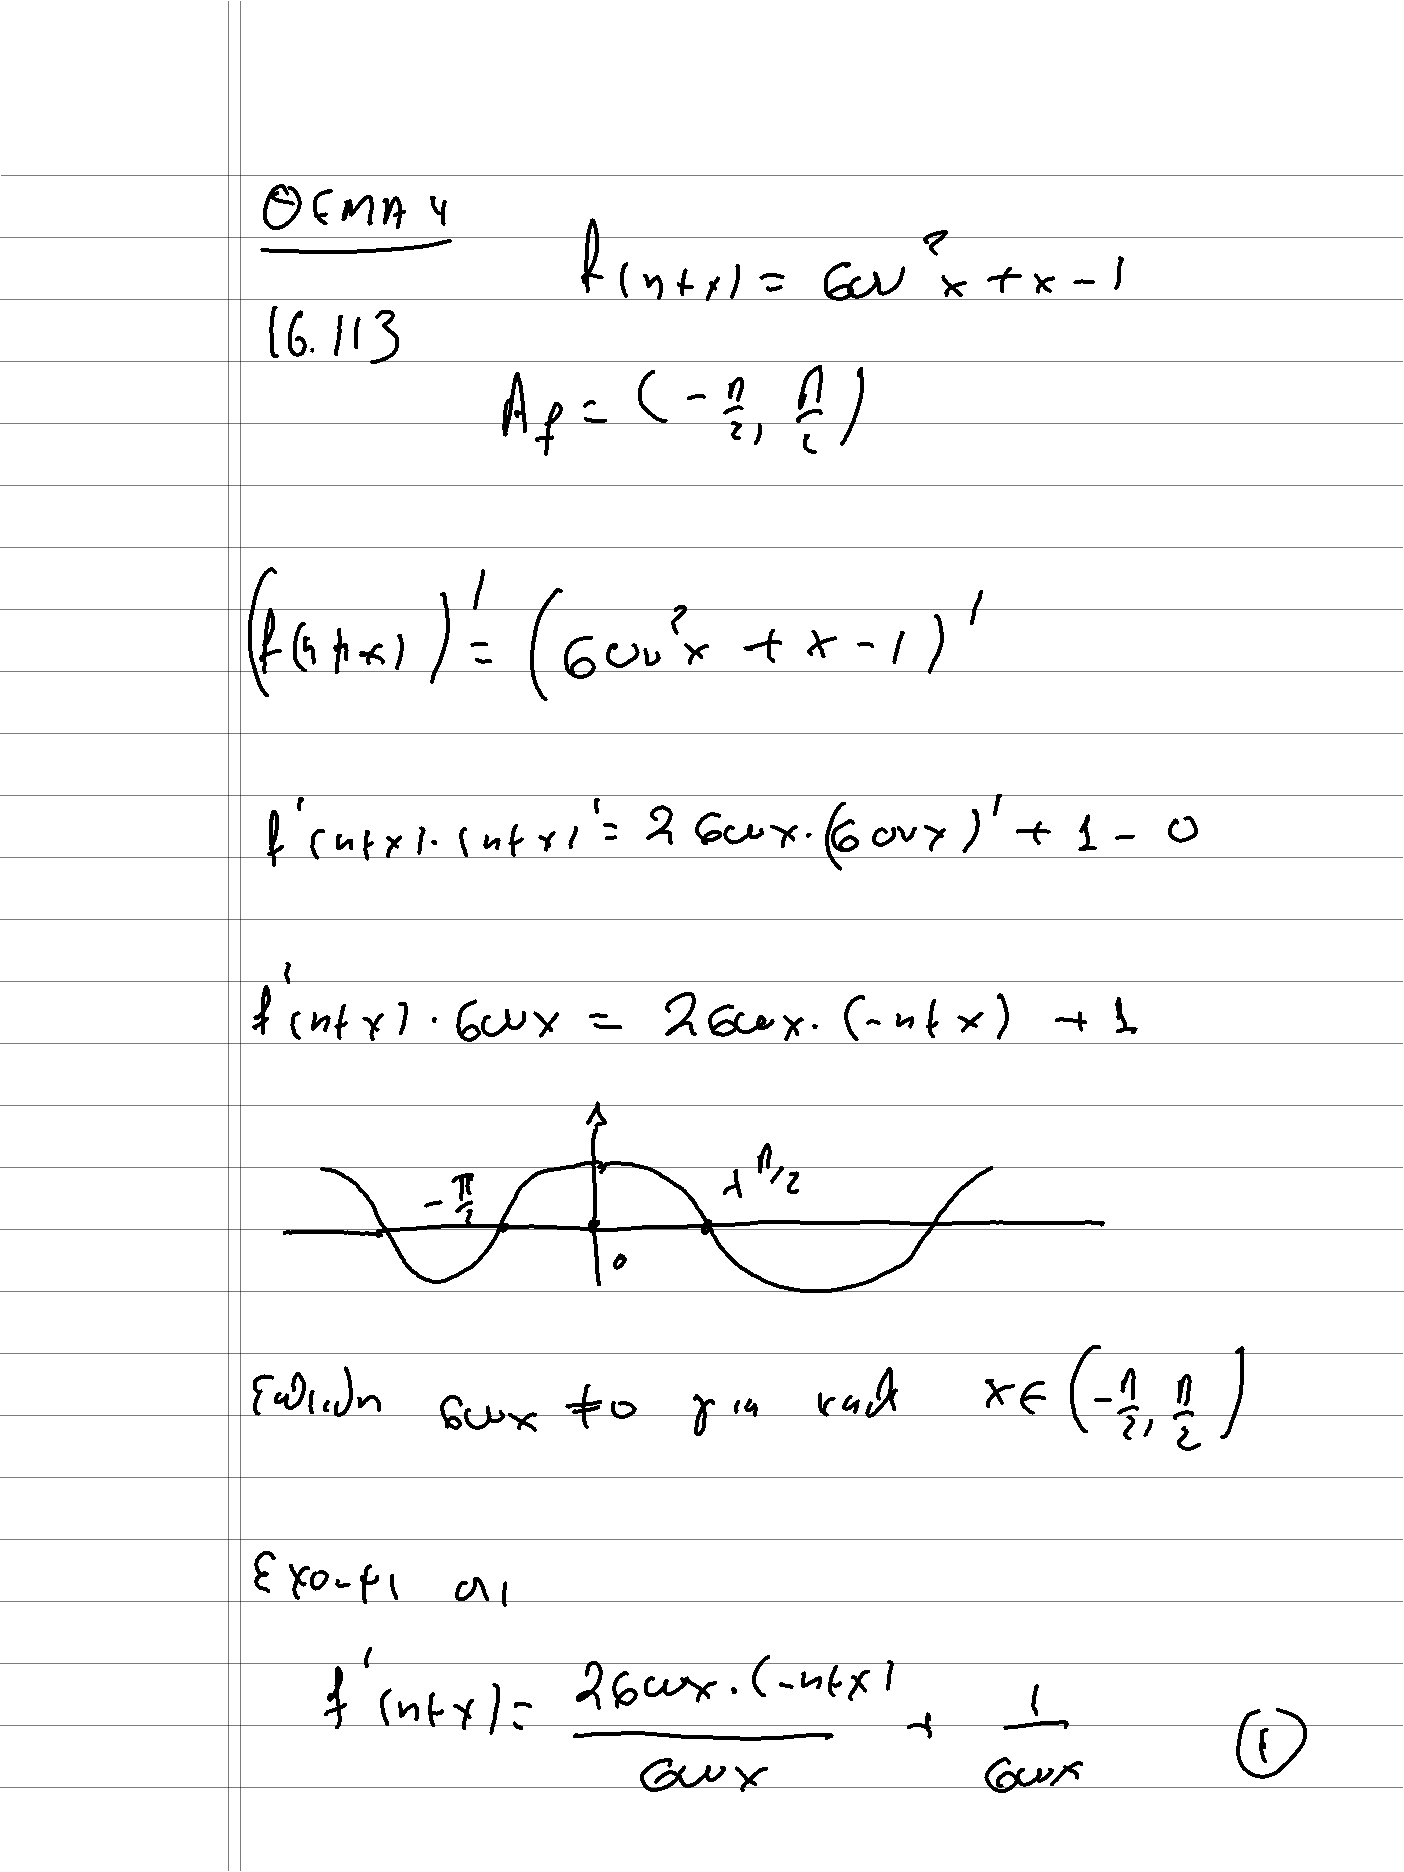 ΘΕΜΑ 4
f(ημx) = συν²x + x - 1
16.113
A_f = (-π/2, π/2)
(f(ημx))' = (συν²x + x - 1)'
f'(ημx)·(ημx)' = 2συνx·(συνx)' + 1 - 0
f'(ημx)·συνx = 2συνx·(-ημx) + 1
-π/2 +π/2
0
Επειδή συνx ≠ 0 για κάθε x ∈ (-π/2, π/2)
Έχουμε ότι
f'(ημx) = 2συνx·(-ημx)/συνx + 1/συνx (1)